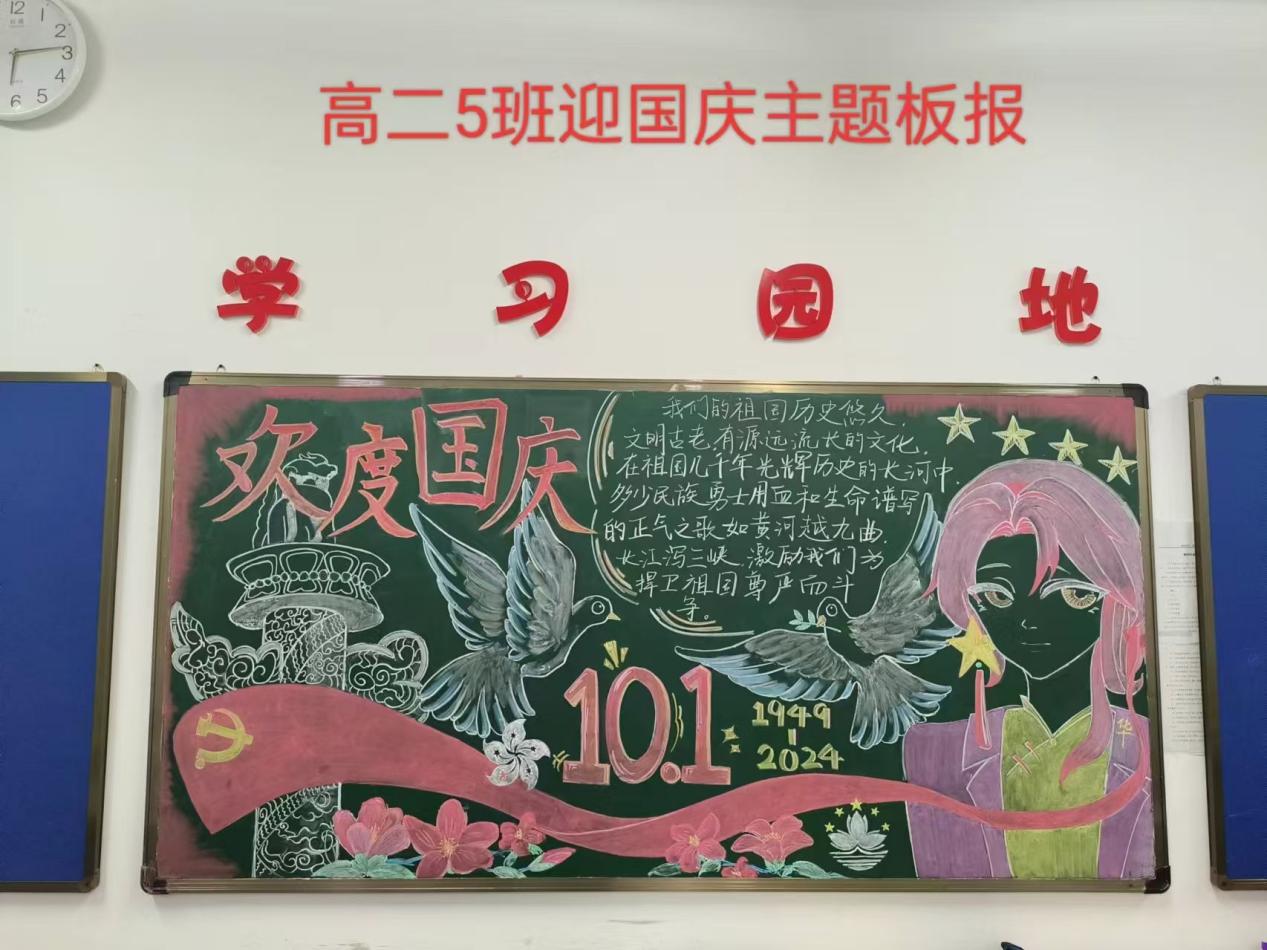 12
1
2
3
4
5
6
高二5班迎国庆主题板报
学习园地
欢度国庆
我们的祖国历史悠久,
文明古老,有源远流长的文化,
在祖国几千年光辉历史的长河中,
多少民族勇士用血和生命谱写
的正气之歌,如黄河越九曲,
长江泻三峡,激励我们为
捍卫祖国尊严而斗
争。
10.1
1949
-
2024
华